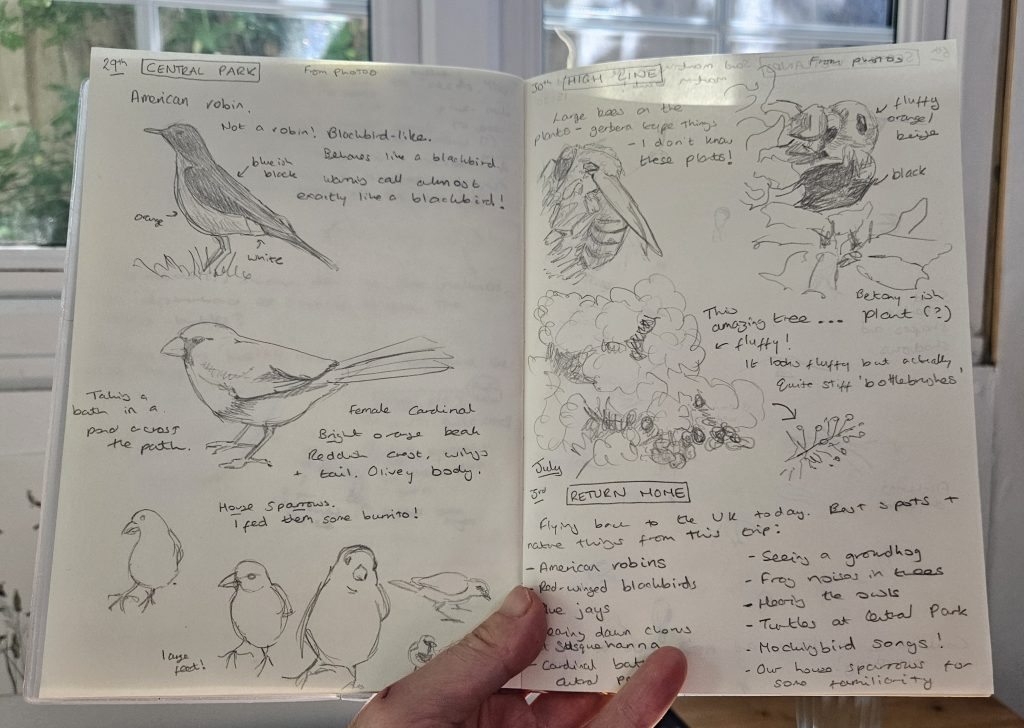 29th CENTRAL PARK From photos
American robin.
Not a robin! Blackbird-like.
Behaves like a blackbird.
Warning call almost
exactly like a blackbird!
blueish
black
orange
white
Taking a
bath in a
pond across
the path.
Female Cardinal
Bright orange beak
Reddish crest, wings
+ tail. Olivey body.
House Sparrows.
I fed them some burrito!
large
feet!
30th HIGH LINE From photos
Large bees on the
plants - gerbera type things
- I don't know
these plants!
fluffy
orange/
beige
black
Betony-ish
plant (?)
This
amazing tree...
fluffy!
It looks fluffy but actually
quite stiff 'bottlebrushes'
July
3rd RETURN HOME
Flying back to the UK today. Best spots +
native things from this trip:
- American robins
- Red-winged blackbirds
Blue jays
dawn chorus
Susquehanna
- Cardinal
- Seeing a groundhog
- Frog noises in trees
- Hearing the owls
- Turtles at Central Park
- Mockingbird songs!
- Our house sparrows for
some familiarity